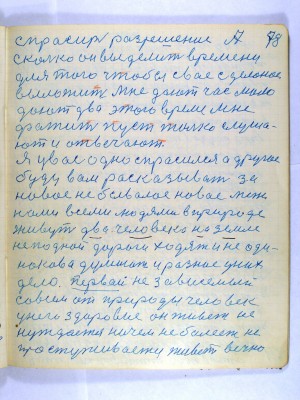 спрасил разрешение А 78
сколко он выделит времени
для того чтобы свае сделоное
выложит мне дают час мало
дают два этого време мне
хватит пуст толко слуша-
ют и отвечают
Я у вас одно спрасился а другое
буду вам расказыват за
новое небывалое новое меж
нами всеми людями в природе
живут два человека на земле
не подной дороги ходят и не оди-
накова думают и разное у них
дело. первай не зависемый
совсем от природы человек
у него здоровие он живет не
нуждается ничем не болеет не
простуживается живет вечно